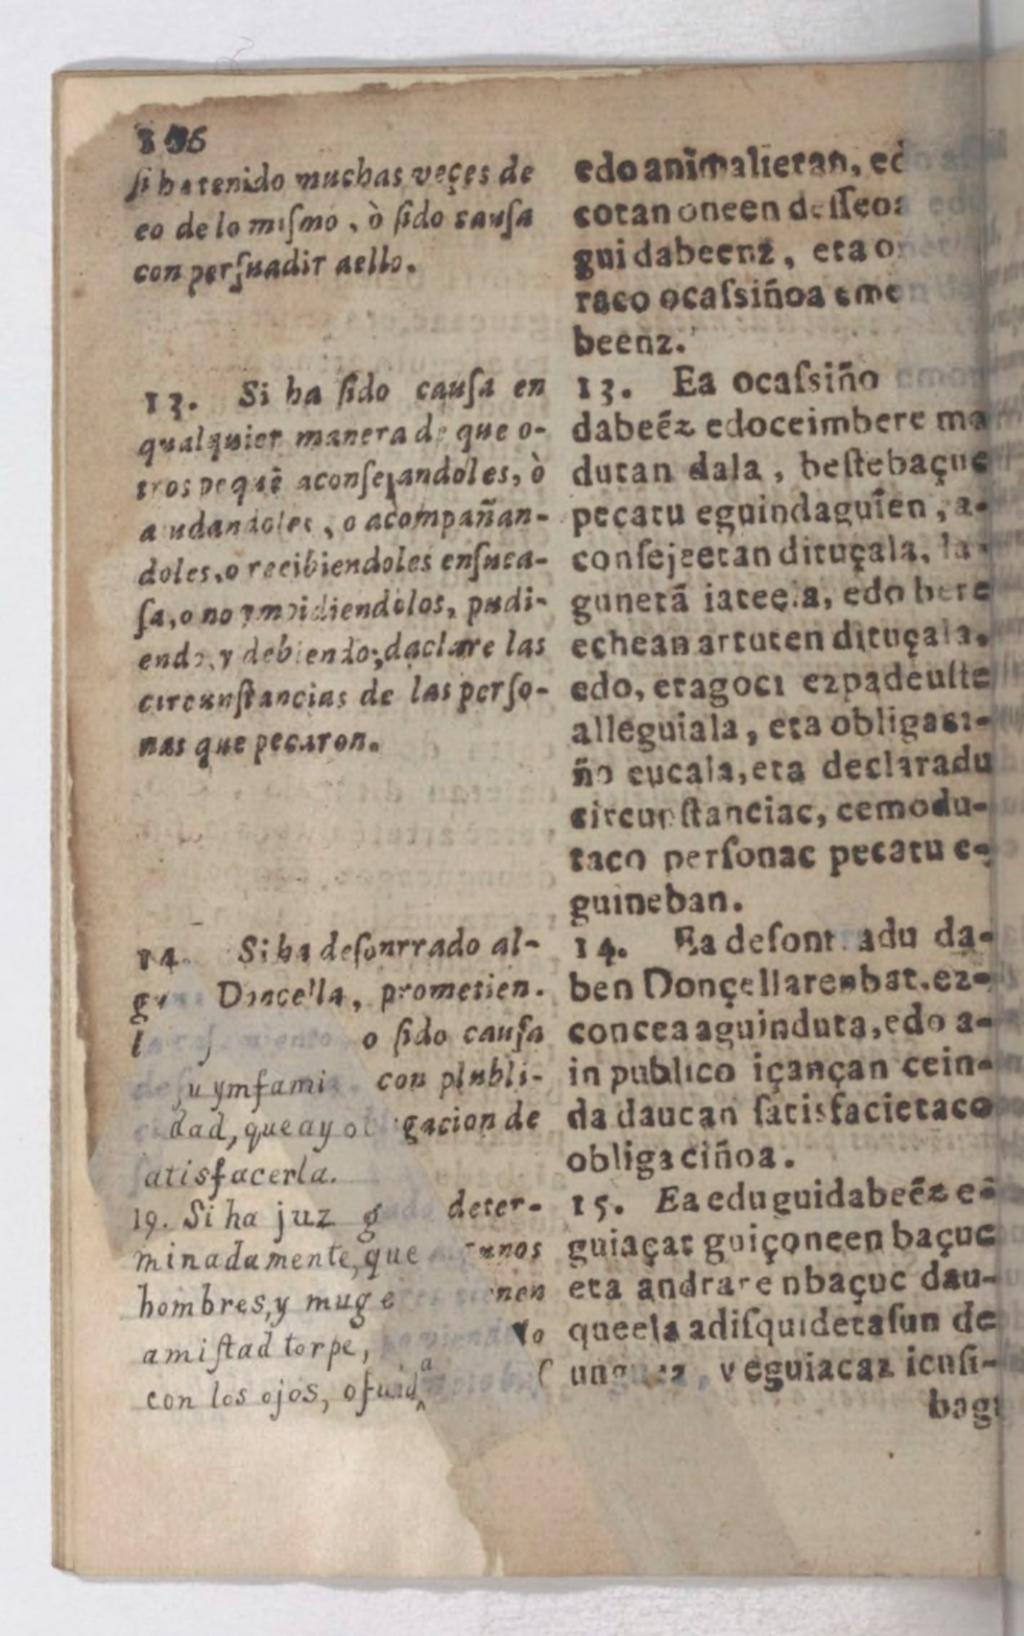 si ha tenido muchas veçes de
eo de lo miſmo, ò ſido cauſa
con perſuadir aello.
13. Si ha ſido cauſa en
qualquier manera de que o-
tros pequē aconſejandoles, ò
audandoles, o acompañan-
doles, o recibiendoles enſuca-
ſa, o no ympidiendolos, pudi-
endo, y debiendo; declare las
circunſtancias de las perſo-
nas que pecaron.
14. Si ha deſonrrado al-
Doncella, prometien-
o ſido cauſa
ymfami con publi-
dad, que ay gacion de
ſatisfacerla.
19. Si ha juz g deter-
minadamente, que unos
hombres, y muge nen
amiſtad torpe,
con los ojos, o
edo animalietan, ed
cotan oneen deſſeoa
guidabeenz, eta o
raco ocaſsiñoa eme
beenz.
13. Ea ocaſsiño
dabeēz edoceimbere ma
dutan dala, beſtebaçuc
pecatu eguindaguien, a-
conſejeetan dituçala, la-
gunetā iateela, edo bere
echean artuten dituçala,
edo, etagoci ezpadeuſte
alleguiala, eta obligaci-
ño eucala, eta declaradu
circunſtanciac, cemodu-
taco perſonac pecatu e-
guineban.
14. Ea deſonradu da-
ben Donçellarenbat, ez-
conceaaguinduta, edo a-
in publico içançan cein-
da daucan ſatisfacietaco
obligaciñoa.
15. Ea eduguidabeēz e-
guiaçat guiçoneen baçuc
eta andrarenbaçuc dau-
queela adiſquidetaſun de
veguiacaz icuſi-
bag